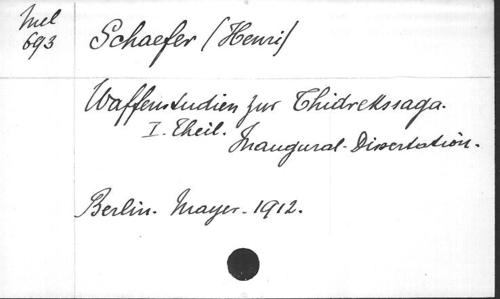 Mel
693
Schaefer (Henri)
Waffenstudien zur Thidrekssaga.
I. Theil.
Inaugural-Dissertation.
Berlin. Mayer. 1912.